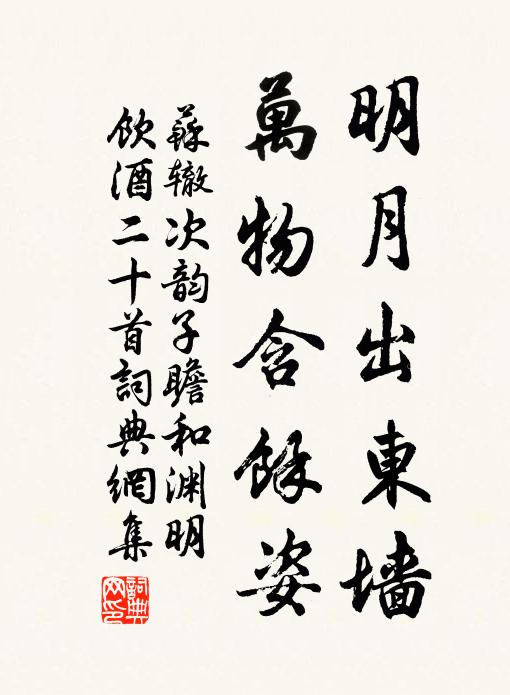 明月出東墙
萬物含餘姿
蘇辙次韵子瞻和渊明
飲酒二十首詞典網集
詞典
网印